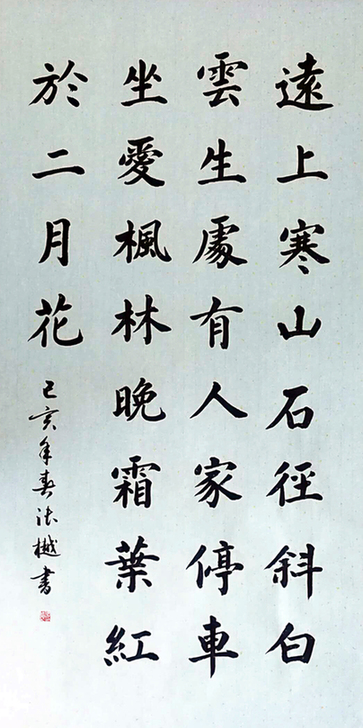 遠上寒山石徑斜白
雲生處有人家停車
坐愛楓林晚霜葉紅
於二月花
己亥年春法樾書